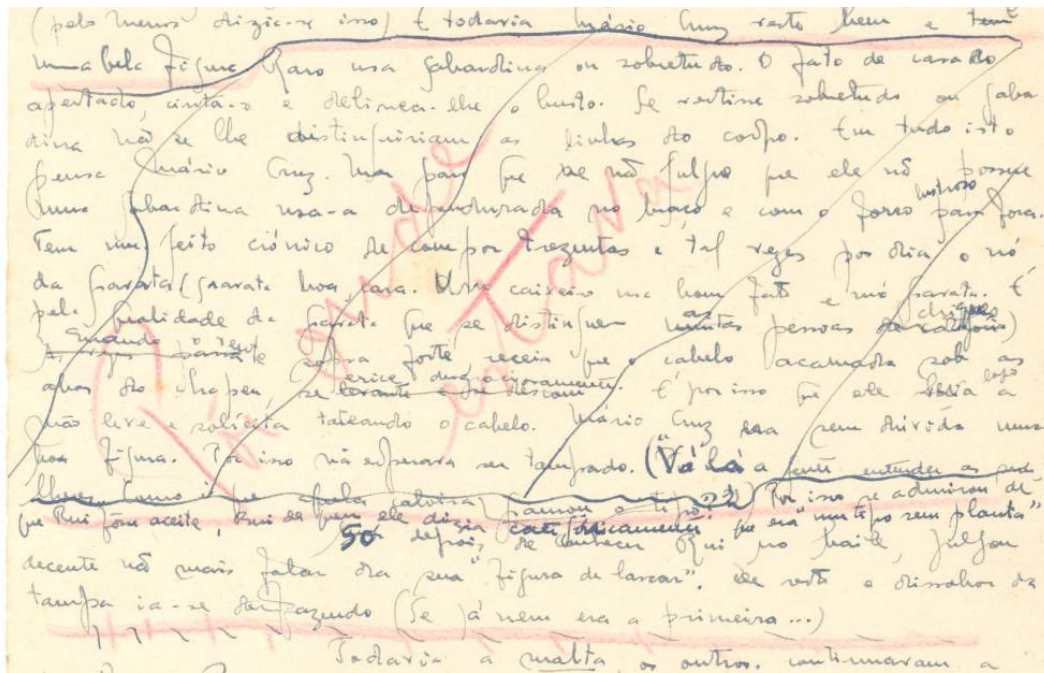 (pelo menos dizia-se isso) E todavia Mário Cruz veste bem e tem
uma bela figura Raro usa gabardina ou sobretudo. O fato de casaco
apertado, cinta-o e delinea-lhe o busto. Se vestisse sobretudo ou gabar
dina não se lhe distinguiriam as linhas do corpo. Em tudo isto
pensa Mário Cruz. Mas para que se não julgue que ele não possue
uma gabardina usa-a dependurada no braço e com o forro lustroso para fora.
Tem um jeito crónico de compor trezentas e tal vezes por dia, o nó
da gravata (gravata boa, cara. Um caixeiro usa bom fato e má gravata. É
pela qualidade da gravata que se distinguem as pessoas chiques)
Quando o vento sopra forte, receia que o cabelo acamado sob as
abas do chapeu, se erice desgraciosamente. É por isso que ele logo a
mão leve e solicita tateando o cabelo. Mário Cruz era sem dúvida uma
boa figura. Por isso não esperava ser tampado. ("Vá lá a gente entender as mu
lheres. Como é que aquela gramou o tipo?") Por isso se admirou de
que Rui fôra aceite, Rui de quem ele dizia categóricamente que era "um tipo sem planta"
Só depois de conhecer Rui no baile, julgou
decente não mais falar da sua "figura de lascar". De resto o dissabor da
tampa ia-se desfazendo (Se já nem era a primeira...)
Todavia a malta, os outros, continuavam a